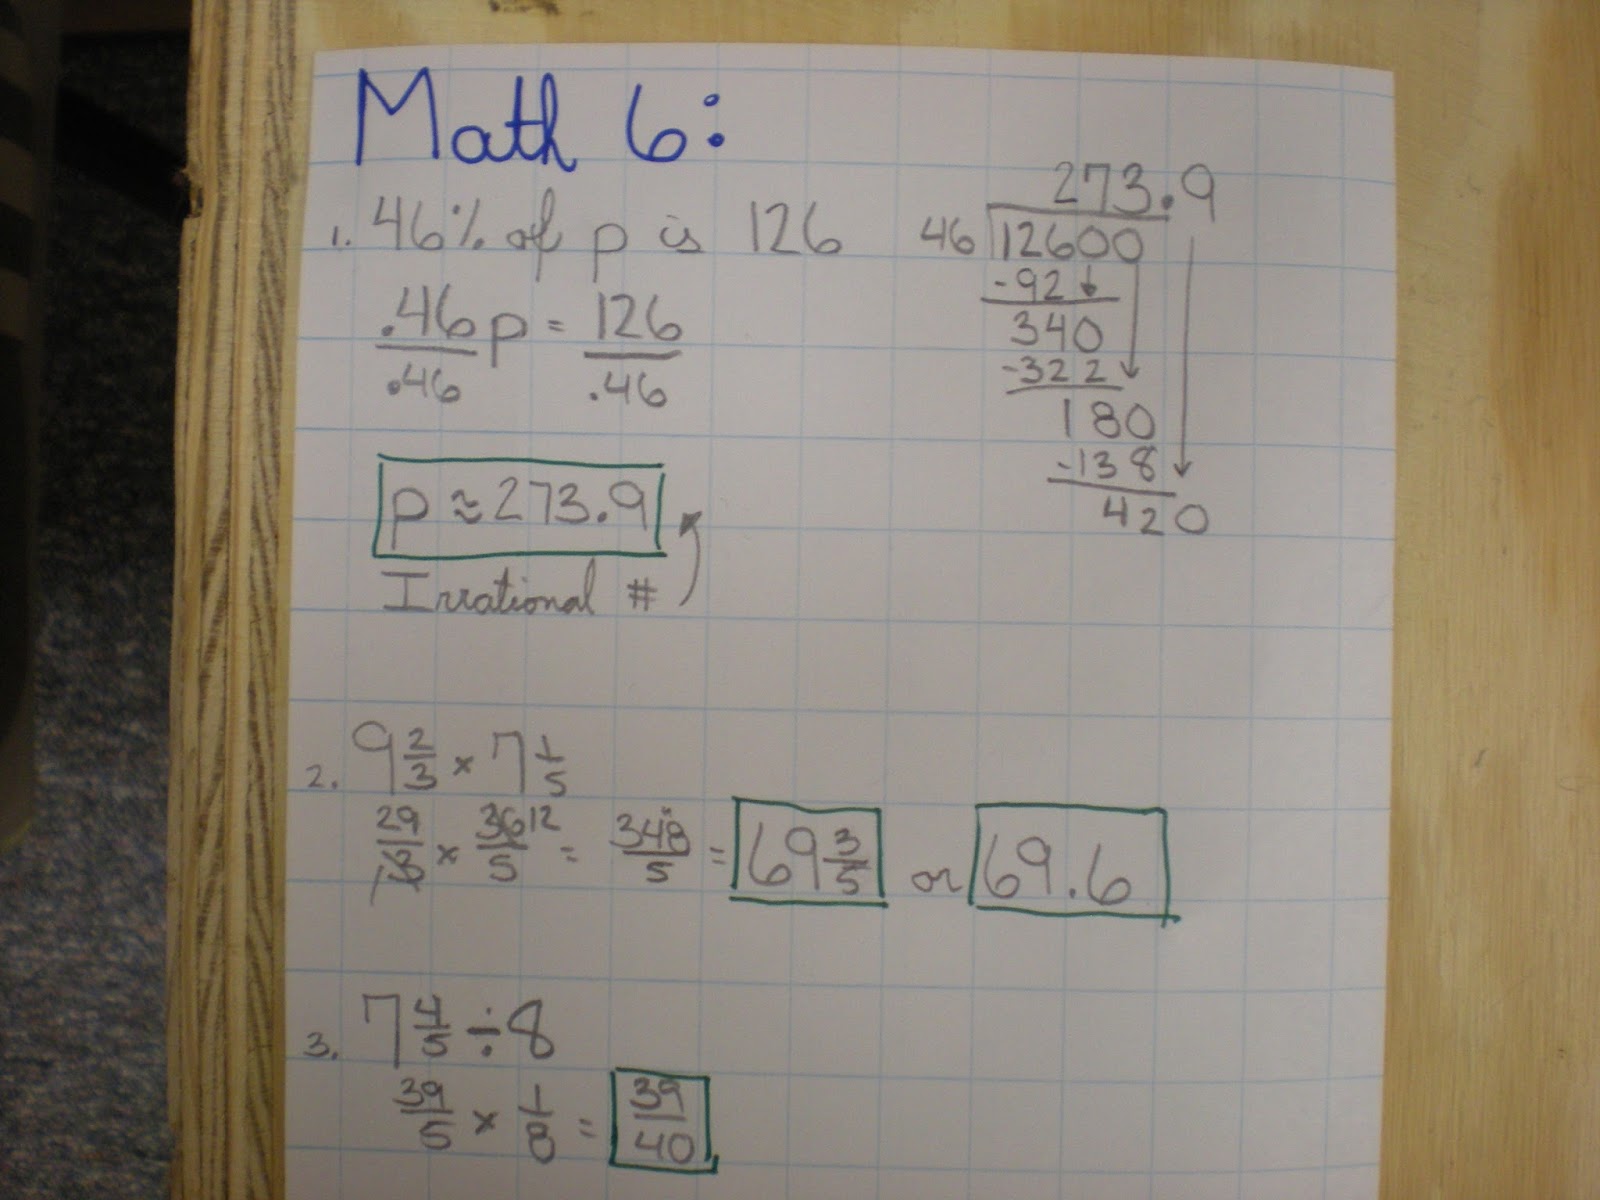 Math 6:
1. 46% of p is 126
.46p = 126
.46 .46
p ≈ 273.9
Irrational #
273.9
46 12600
-92
340
-322
180
-138
420
2. 9 2/3 × 7 1/5
29/3 × 36/5 12 = 348/5 = 69 3/5 or 69.6
1
3. 7 4/5 ÷ 8
39/5 × 1/8 = 39/40